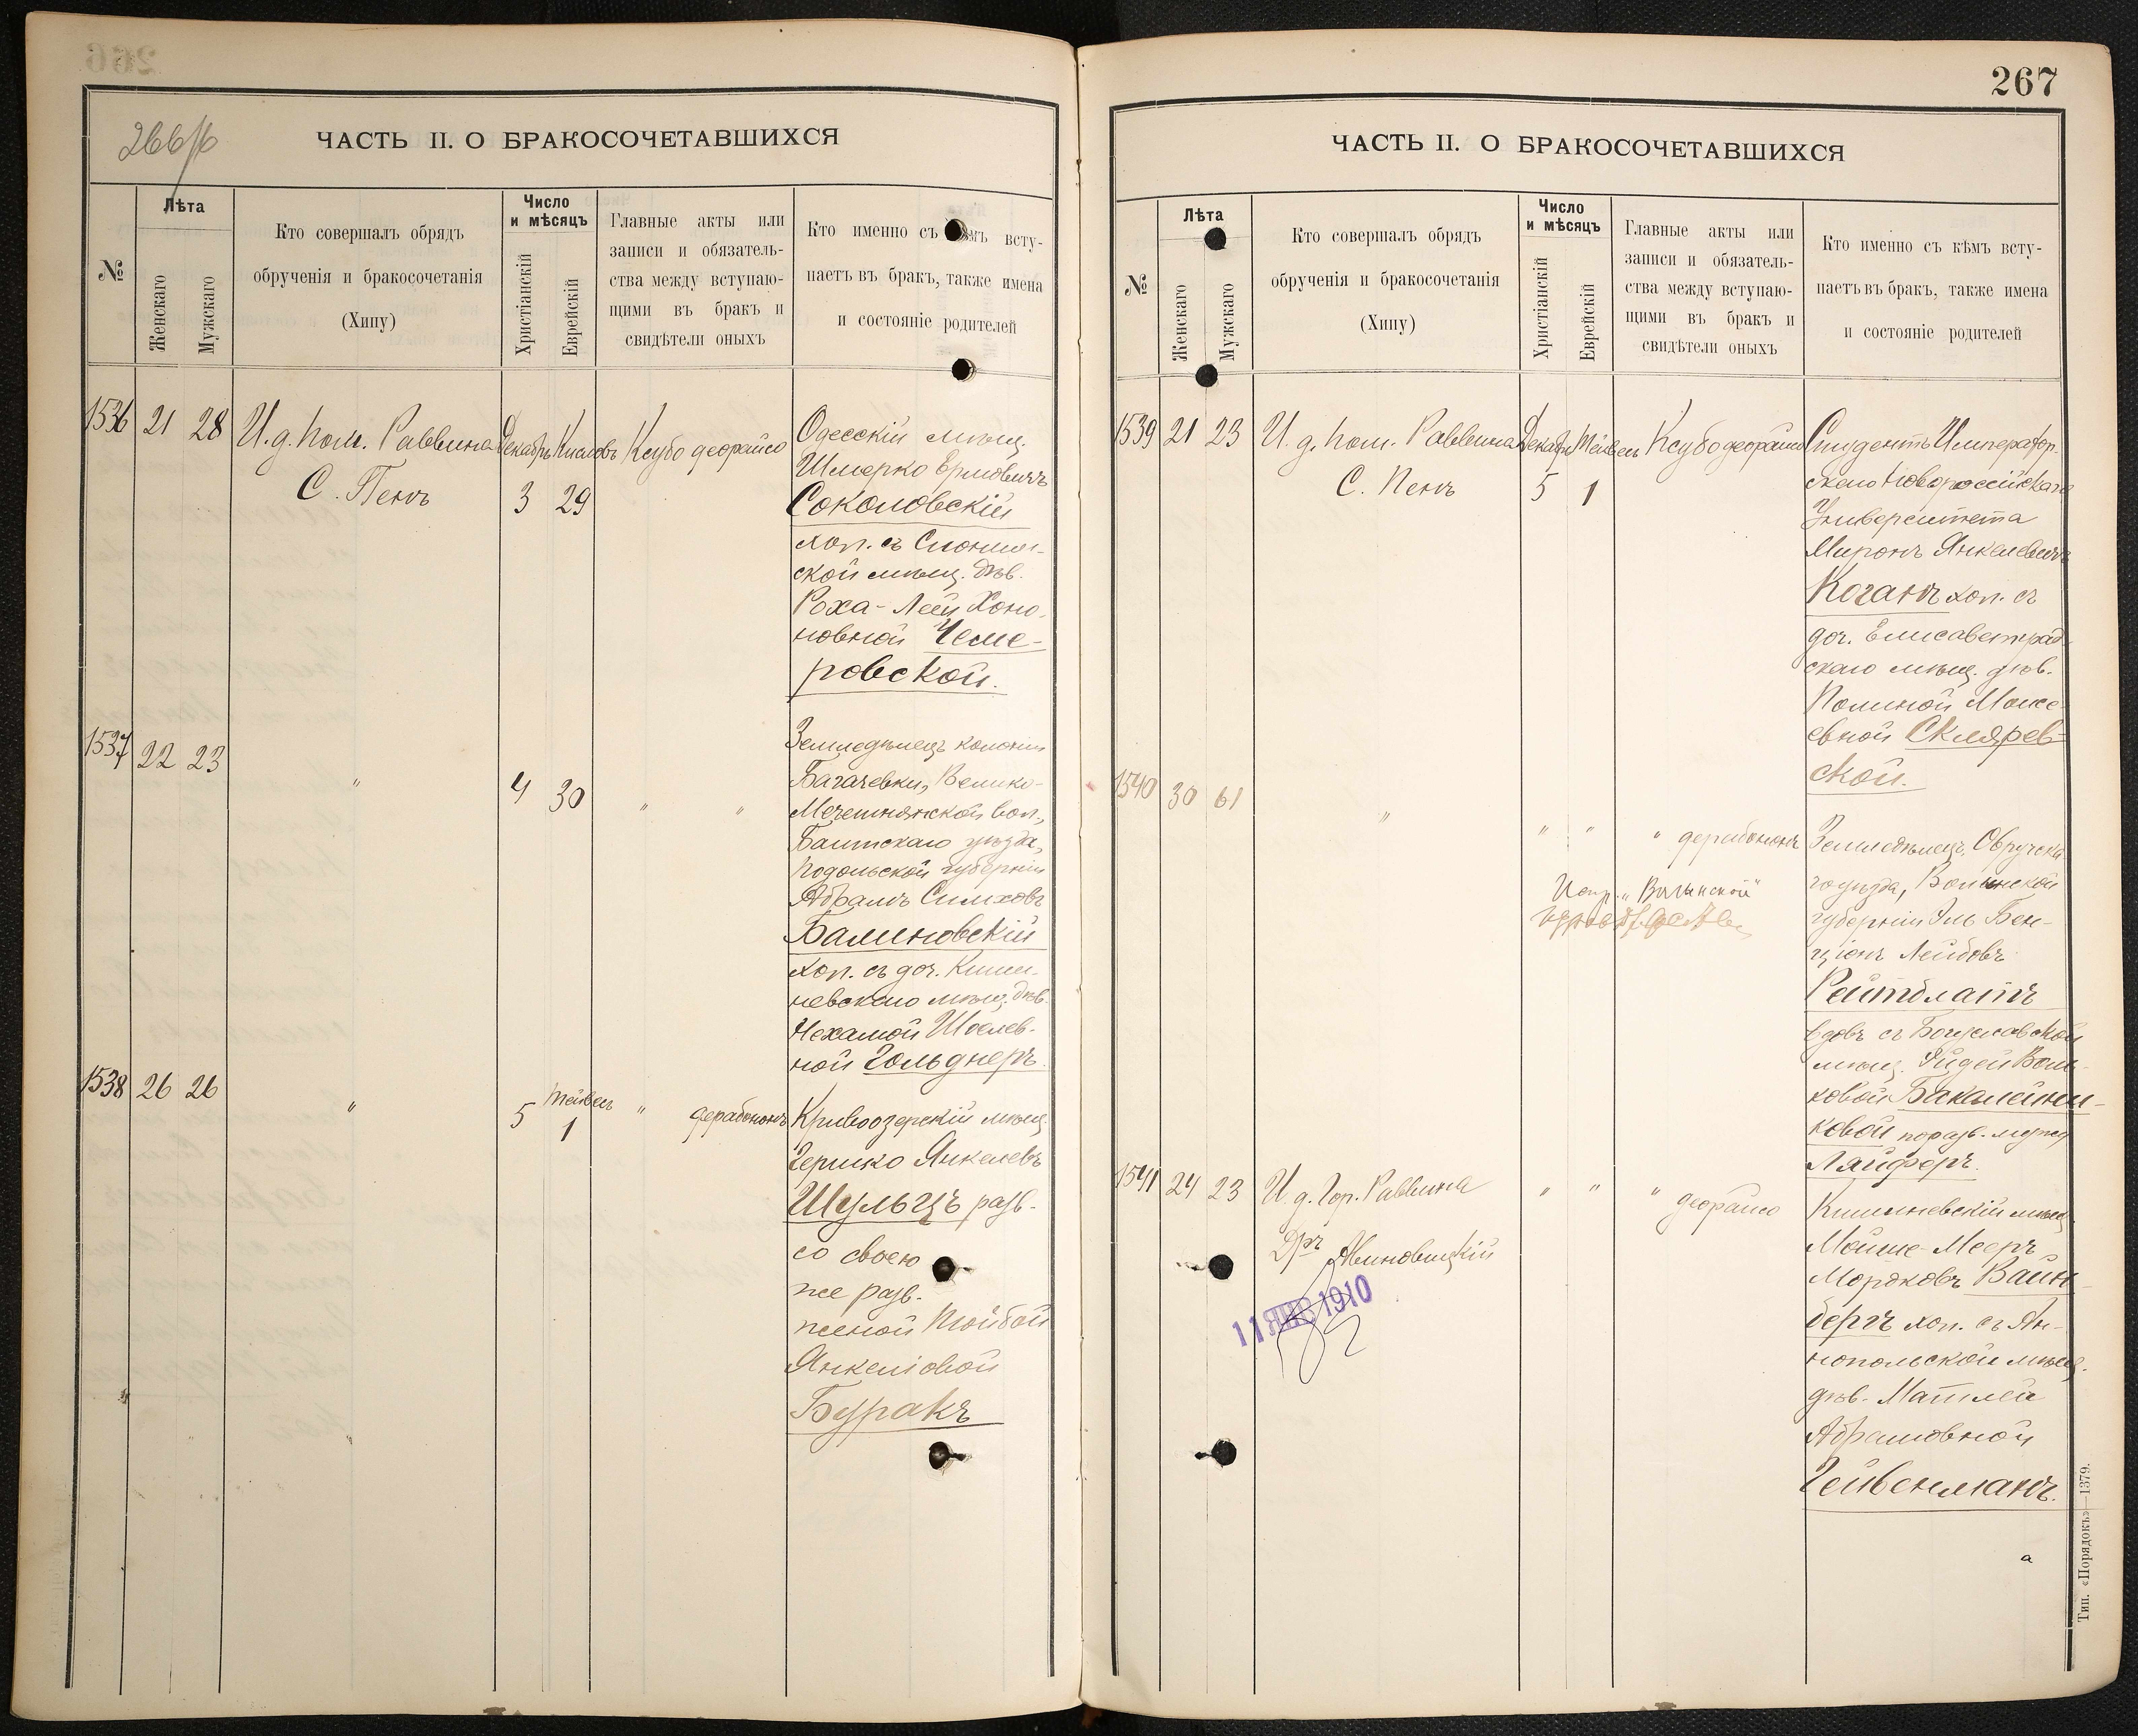 266/б
ЧАСТЬ II. О БРАКОСОЧЕТАВШИХСЯ
№
Лѣта
Женскаго
Мужскаго
Кто совершалъ обрядъ
обрученія и бракосочетанія
(Хипу)
Число
и мѣсяцъ
Христіанскій
Еврейскій
Главные акты или
записи и обязатель-
ства между вступаю-
щими въ бракъ и
свидѣтели оныхъ
Кто именно съ кѣмъ всту-
паетъ въ бракъ, также имена
и состояніе родителей
1536 21 28 И. д. пом. Раввина Декабрь Кислевъ Ксубо деорайсо
С. Пенъ 3 29
Одесскій мѣщ.
Шмерко
Соколовскій
хол. съ Слоним-
ской мѣщ. дѣв.
Роха-Леей Хоно-
новной Чеме-
ровской.
1537 22 23 " 4 30 " "
Земледѣлецъ колоніи
Багачевки, Велико-
Мечетнянской вол.,
Балтскаго уѣзда,
Подольской губерніи
Абрамъ Симховъ
Балиновскій
хол. съ доч. Киши-
невскаго мѣщ. дѣв.
Нехамой Шоелев-
ной Гольднеръ.
1538 26 26 " 5 Тейвесъ 1 " дерабононъ
Кривоозерскій мѣщ.
Гершко Янкелевъ
Шульцъ разв.
со своею
же разв.
женой Тойбой
Янкеловой
Буракъ
267
ЧАСТЬ II. О БРАКОСОЧЕТАВШИХСЯ
№
Лѣта
Женскаго
Мужскаго
Кто совершалъ обрядъ
обрученія и бракосочетанія
(Хипу)
Число
и мѣсяцъ
Христіанскій
Еврейскій
Главные акты или
записи и обязатель-
ства между вступаю-
щими въ бракъ и
свидѣтели оныхъ
Кто именно съ кѣмъ всту-
паетъ въ бракъ, также имена
и состояніе родителей
1539 21 23 И. д. пом. Раввина Декабрь Тейвесъ Ксубо деорайсо
С. Пенъ 5 1
Студентъ Император-
скаго Новороссійскаго
Университета
Миронъ Янкелевичъ
Коганъ хол. съ
доч. Елисаветград-
скаго мѣщ. дѣв.
Полиной Моисе-
евной Скляров-
ской.
1540 30 61 " " " " дерабононъ
Испр. „Волынской"
Земледѣлецъ Овручска-
го уѣзда, Волынской
губерніи Эль Бен-
ціонъ Лейбовъ
Рейтблатъ
вдовъ съ Богуславской
мѣщ. Эйдей Воль-
ковой Бакалейни-
ковой по разв. мужу
Ляйферъ.
1541 24 23 И. д. Гор. Раввина " " " деорайсо
Дръ Авиновицкій
11 ЯНВ 1910
Кишиневскій мѣщ.
Мойше-Мееръ
Мордковъ Вайн-
бергъ хол. съ Ян-
нопольской мѣщ.
дѣв. Матлей
Абрамовной
Гейвенманъ.
Тип. «Порядокъ»—1379.